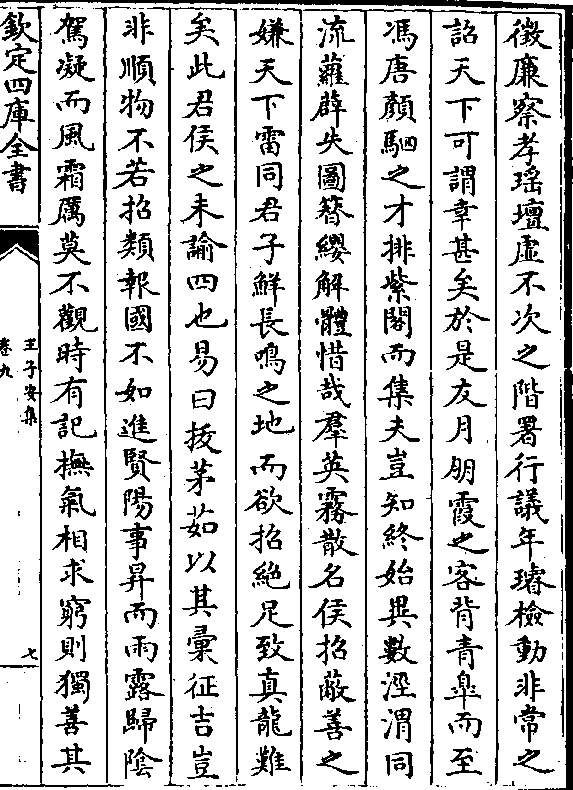 徵廉察孝瑤壇虛不次之階署行議年璿檢動非常之
詔天下可謂幸甚矣於是友月朋霞之客背青臯而至
馮唐顏駟之才排紫閣而集夫豈知終始異數涇渭同
流蘿薜失圖簪纓解體惜哉羣英霧散名侯招蔽善之
嫌天下雷同君子鮮長鳴之地而欲招絶足致真龍難
矣此君侯之未諭四也易曰拔茅茹以其彙征吉豈
非順物不若招類報國不如進賢陽事昇而雨露歸陰
駕凝而風霜厲莫不觀時有記撫氣相求窮則獨善其
欽定四庫全書
王子安集
卷九
七